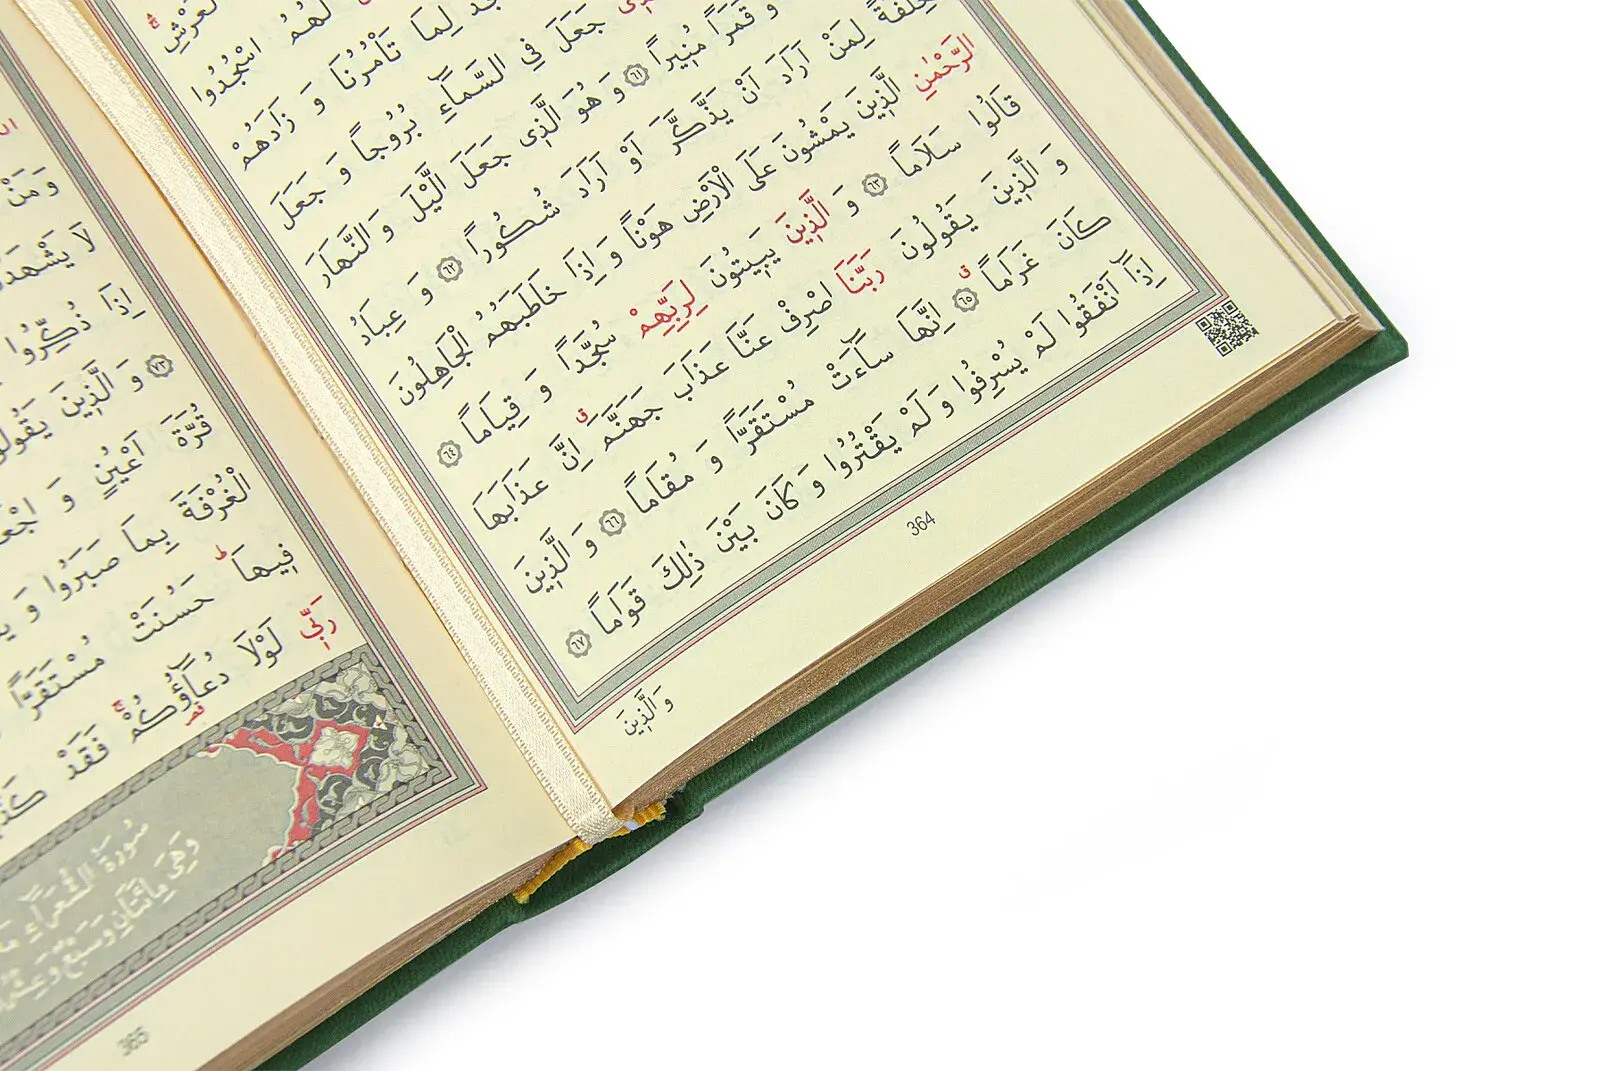 الْعَرْشِ
لَهُمُ اسْجُدُوا
لِمَا تَأْمُرُنَا وَ زَادَهُمْ
جَعَلَ فِي السَّمَٓاءِ بُرُوجاً وَ جَعَلَ
وَ قَمَراً مُنِيراً ٦١ وَ هُوَ الَّذٖى جَعَلَ الَّيْلَ وَ النَّهَارَ
خِلْفَةً لِمَنْ اَرَادَ اَنْ يَذَّكَّرَ اَوْ اَرَادَ شُكُوراً ٦٢ وَ عِبَادُ
الرَّحْمٰنِ الَّذٖينَ يَمْشُونَ عَلَى الْاَرْضِ هَوْناً وَ اِذَا خَاطَبَهُمُ الْجَاهِلُونَ
قَالُوا سَلَاماً ٦٣ وَ الَّذٖينَ يَبٖيتُونَ لِرَبِّهِمْ سُجَّداً وَ قِيَاماً ٦٤
وَ الَّذٖينَ يَقُولُونَ رَبَّنَا اصْرِفْ عَنَّا عَذَابَ جَهَنَّمَ ق اِنَّ عَذَابَهَا
كَانَ غَرَاماً ق ٦٥ اِنَّهَا سَٓاءَتْ مُسْتَقَرًّا وَ مُقَاماً ٦٦ وَ الَّذٖينَ
اِذَٓا اَنْفَقُوا لَمْ يُسْرِفُوا وَ لَمْ يَقْتُرُوا وَ كَانَ بَيْنَ ذٰلِكَ قَوَاماً ٦٧
وَ الَّذٖينَ
364
وَ مَنْ
لَا يَشْهَدُونَ
اِذَا ذُكِّرُوا
٧٣ وَ الَّذٖينَ يَقُولُونَ
قُرَّةَ اَعْيُنٍ وَ اجْعَلْنَا
الْغُرْفَةَ بِمَا صَبَرُوا وَ
فٖيهَا ط حَسُنَتْ مُسْتَقَرًّا
رَبّٖى لَوْلَا دُعَٓاؤُكُمْ فَقَدْ
سُورَةُ الشُّعَرَٓاءِ
وَهِيَ مِائَتَانِ وَسَبْعٌ وَعِشْرُونَ
365